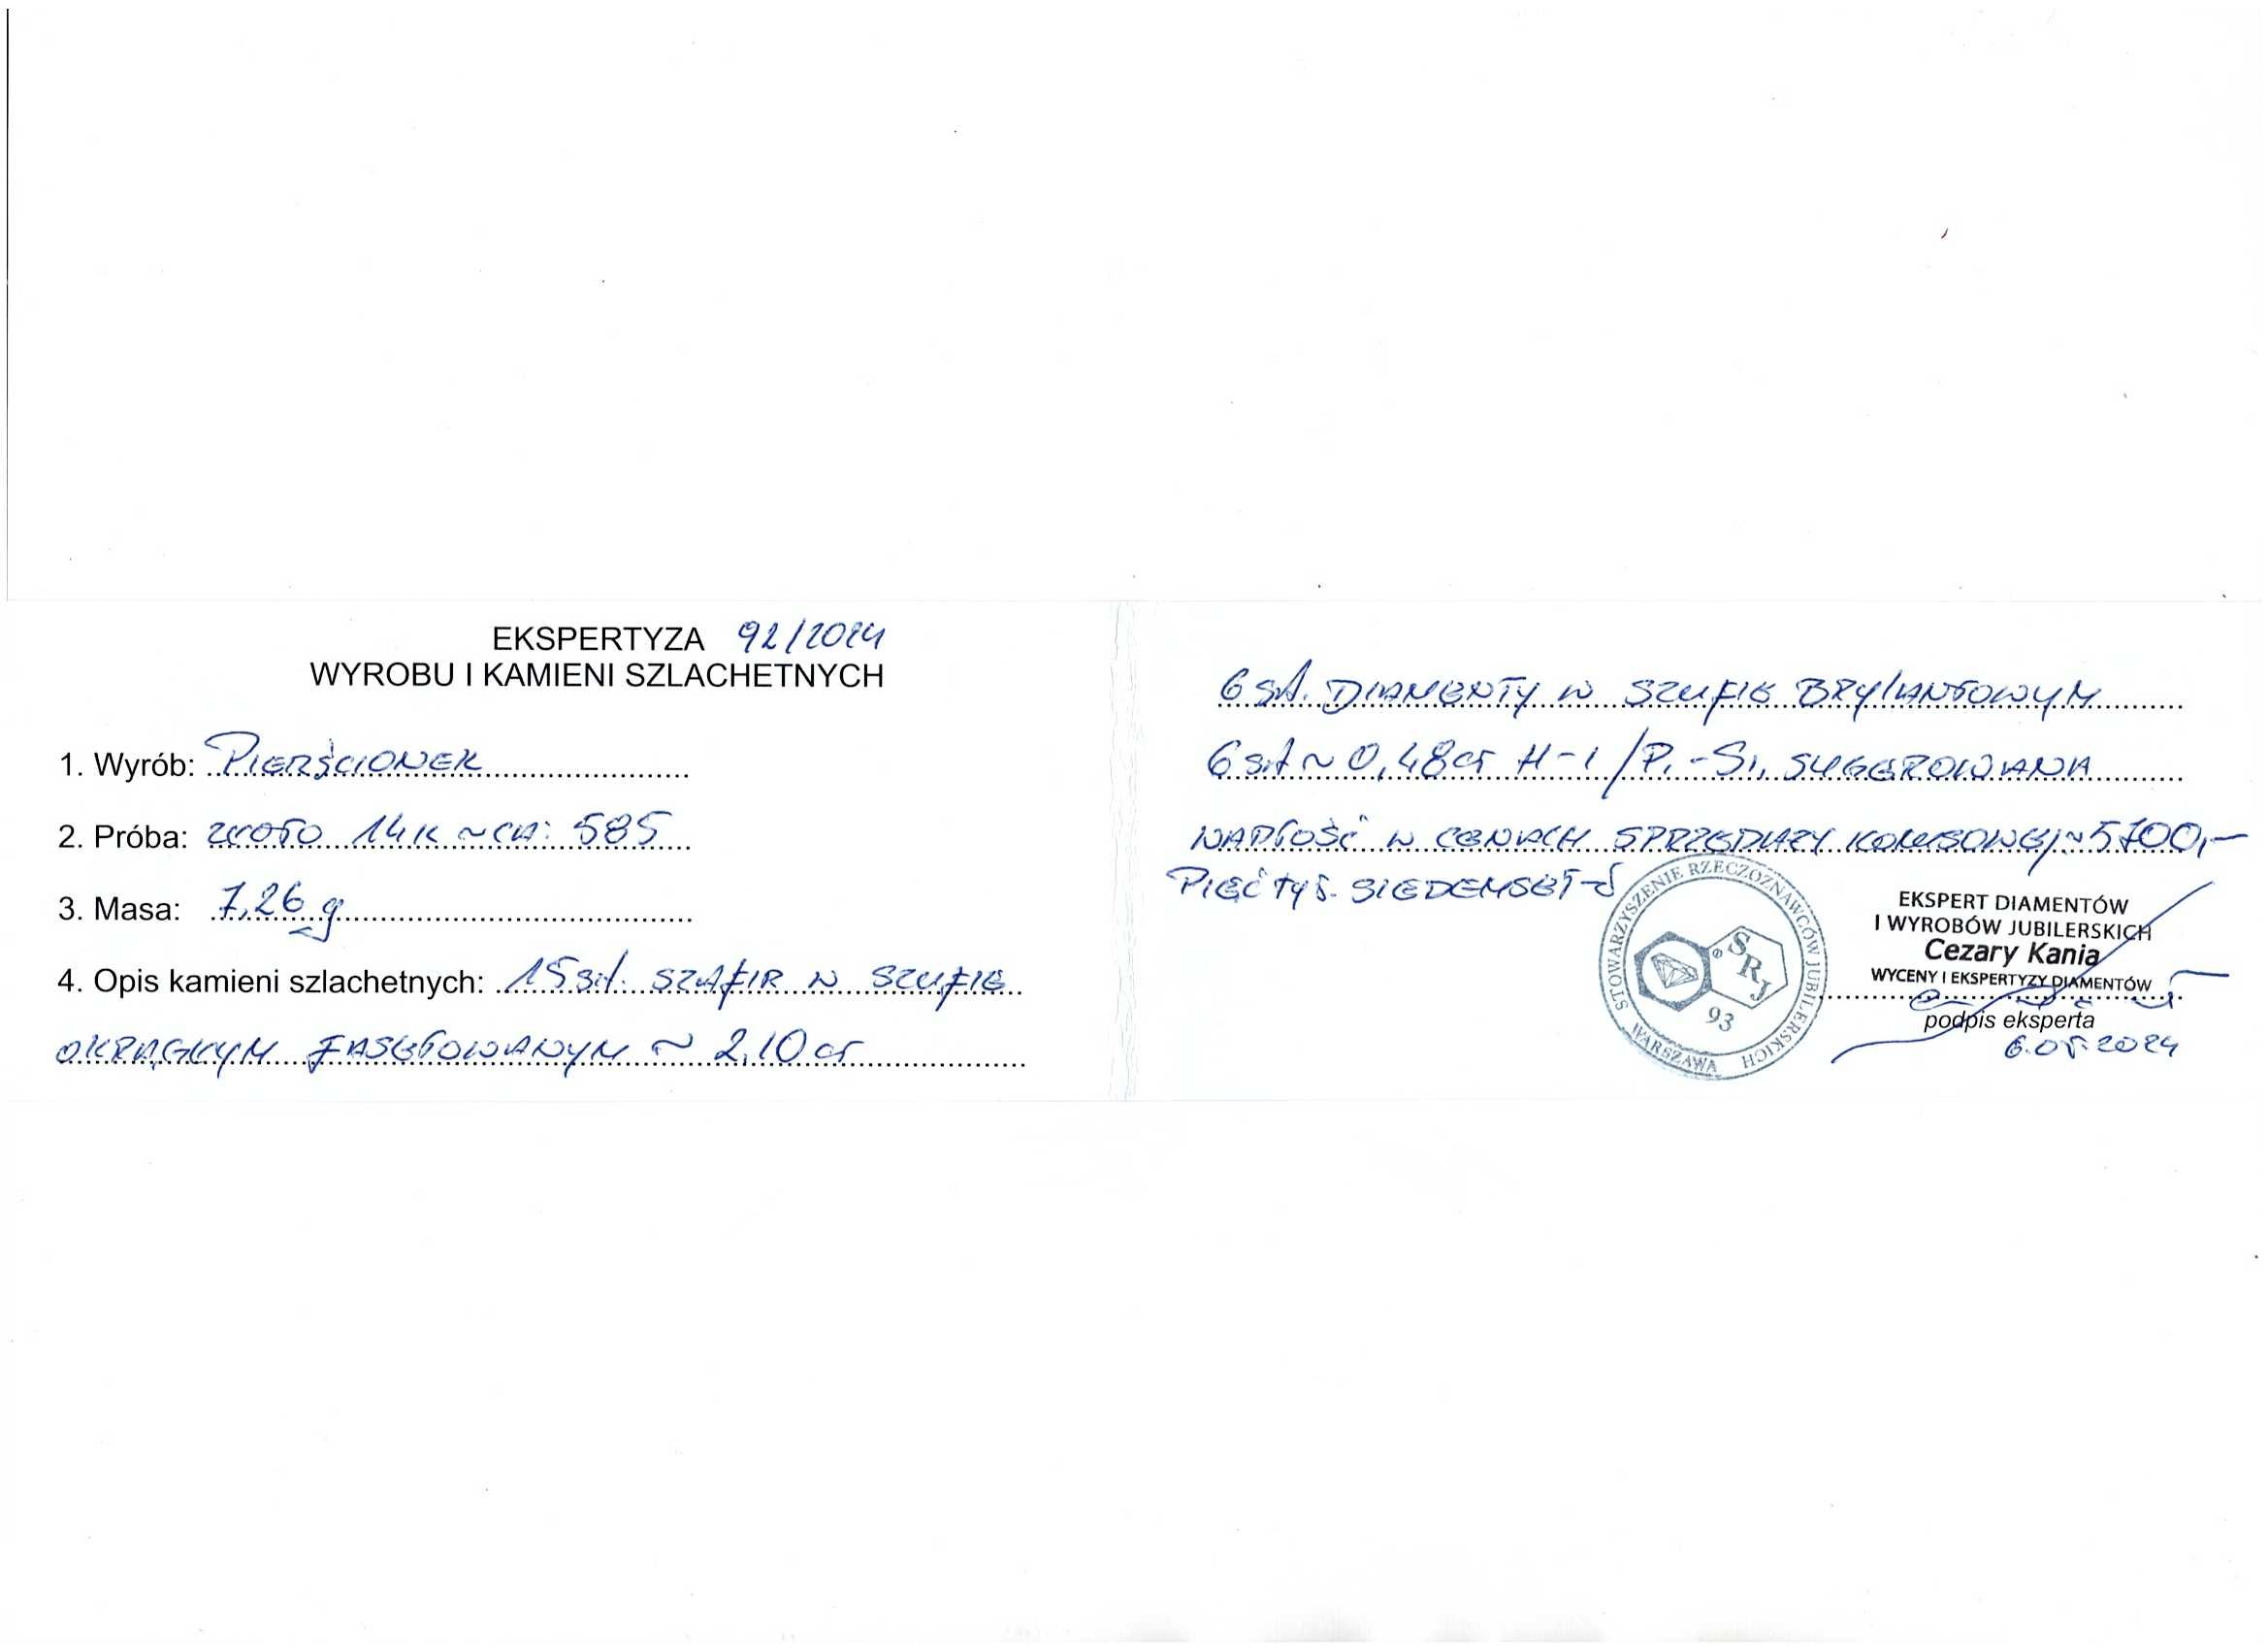 EKSPERTYZA 92/2024
WYROBU I KAMIENI SZLACHETNYCH
1. Wyrób: PIERŚCIONEK
2. Próba: ZŁOTO 14K ~ CA: 585
3. Masa: 7,26 g
4. Opis kamieni szlachetnych: 15 szt. SZAFIR W SZLIFIE
OKRĄGŁYM FASETOWANYM ~ 2,10 ct
6 szt. DIAMENTY W SZLIFIE BRYLANTOWYM
6 szt ~ 0,48 ct H-I /P1-SI, SUGEROWANA
WARTOŚĆ W CENACH SPRZEDAŻY KOMISOWEJ ~ 5700,-
PIĘĆ TYŚ. SIEDEMSET-
STOWARZYSZENIE RZECZOZNAWCÓW JUBILERSKICH
WARSZAWA
SRJ
®
93
EKSPERT DIAMENTÓW
I WYROBÓW JUBILERSKICH
Cezary Kania
WYCENY I EKSPERTYZY DIAMENTÓW
podpis eksperta
6.05.2024